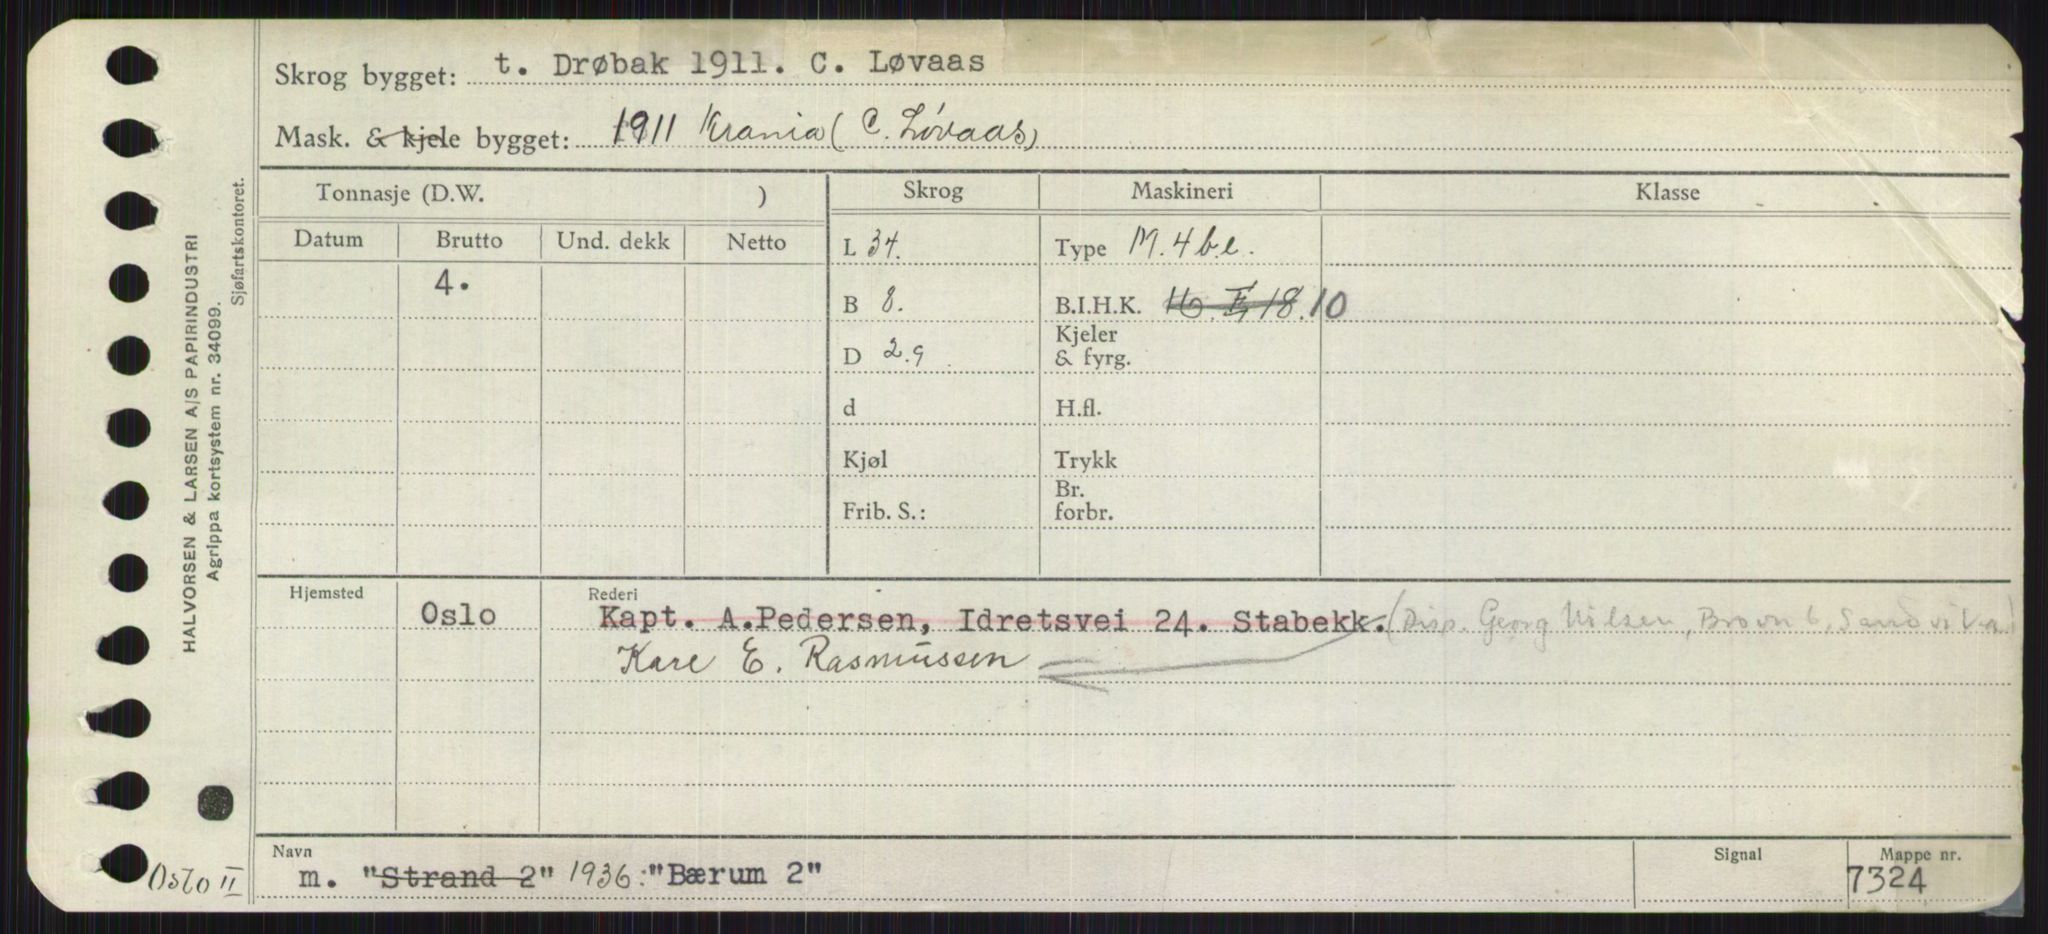 Skrog bygget: t. Drøbak 1911. C. Løvaas
Mask. & kjele bygget: 1911 Krania (C. Løvaas)
Tonnasje (D.W. ) Skrog Maskineri Klasse
Datum Brutto Und. dekk Netto L 34. Type M. 4 b.e.
4. B 8. B.I.H.K. 16. E, 18. 10
D 2.9 Kjeler & fyrg.
d H.fl.
Kjøl Trykk
Frib. S.: Br. forbr.
Hjemsted Rederi
Oslo Kapt. A.Pedersen, Idretsvei 24. Stabekk. (Disp. Georg Nilsen, Sandvika)
Kare E. Rasmussen
Navn Signal Mappe nr.
m. "Strand 2" 1936: "Bærum 2" 7324
Oslo II
HALVORSEN & LARSEN A/S PAPIRINDUSTRI
Agrippa kortsystem nr. 34099.
Sjøfartskontoret.